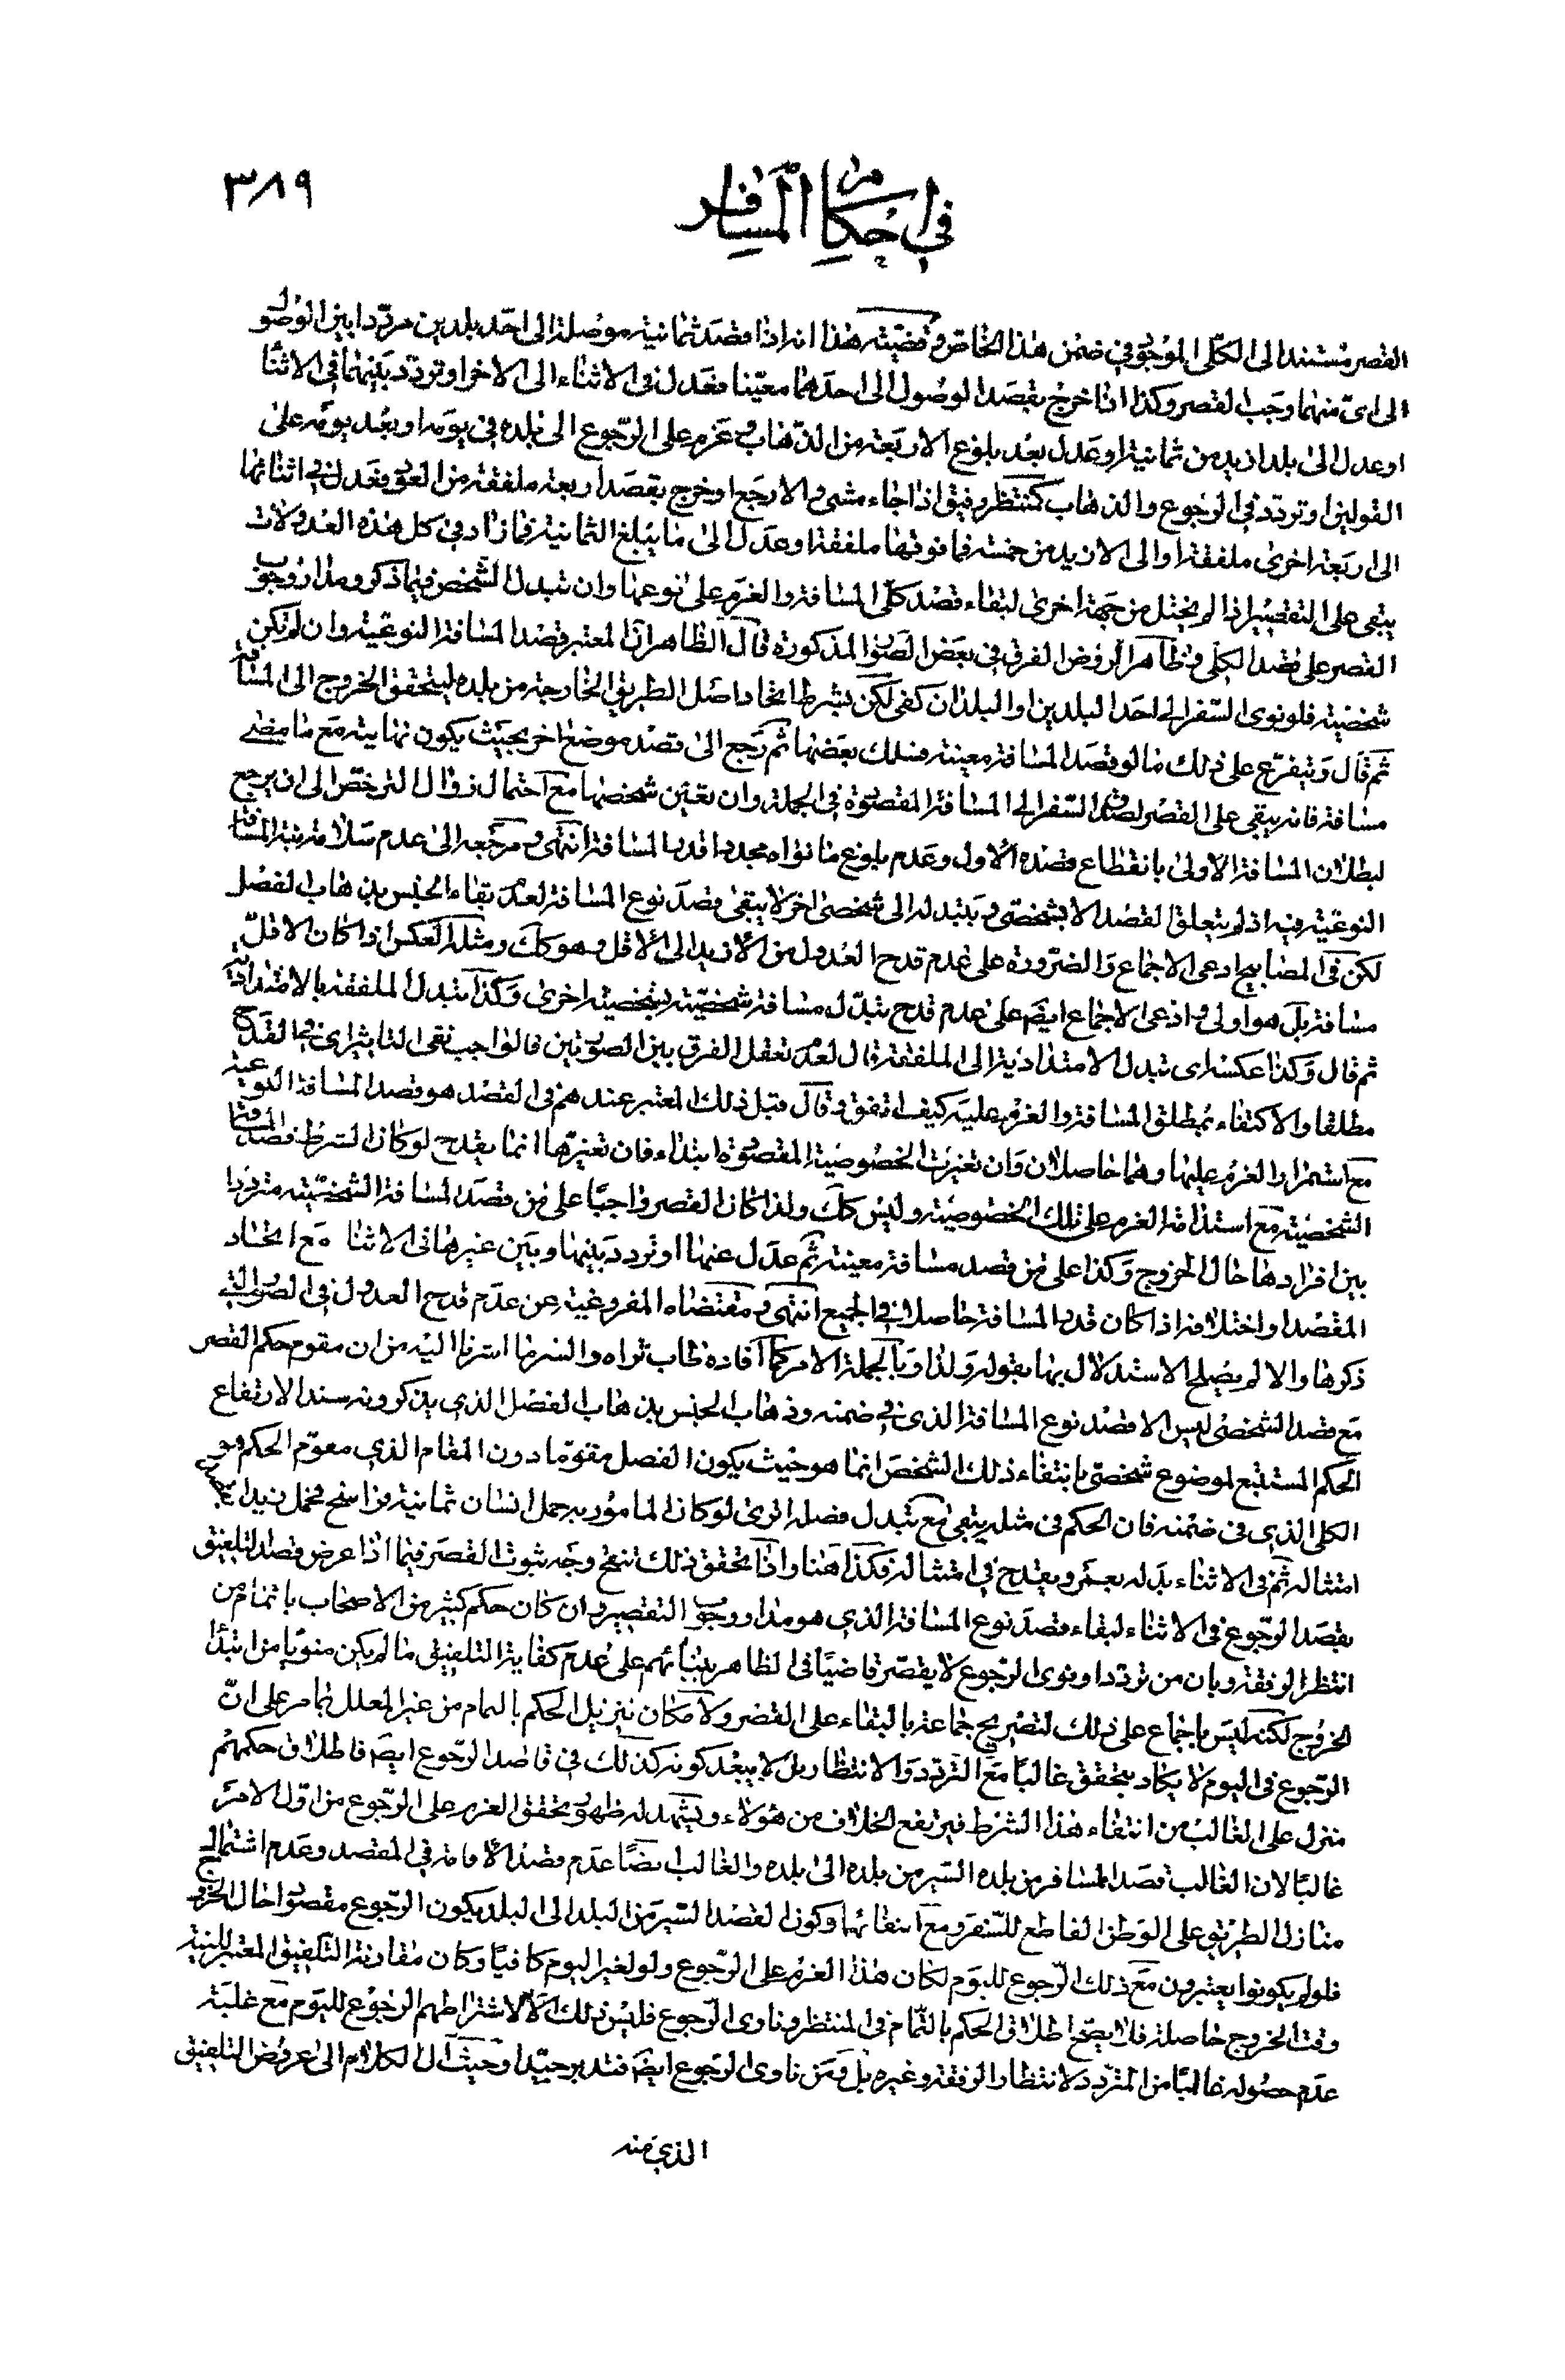 ٣٨٩
في احكام المسافر
القصر مستند الى الكلّى الموجود في ضمن هذا الخاصّ وقضيّته هذا انه اذا قصد ثمانية موصلة الى احد بلدين مردّدا بين الوصول
الى اىّ منهما وجب القصر وكذا اذا خرج بقصد الوصول الى احدهما معيّنا فعدل في الاثناء الى الاخر او تردّد بينهما في الاثنا
او عدل الى بلد ازيد من ثمانية او عدل بعد بلوغ الاربعة من الذهاب وعزم على الرّجوع الى بلده في يومه او بعد يومه على
القولين او تردّد في الرجوع والذهاب كمنتظر رفيق اذا جاء مشى والا رجع او خرج بقصد اربعة ملفقة من العود فعدل في اثنائها
الى اربعة اخرى ملفقة او الى الازيد من خمسة فما فوقها ملفقة او عدل الى ما يبلغ الثمانية فما زاد في كل هذه العدولات
يبقى على التقصير اذا لم يختل من جهة اخرى لبقاء قصد كلّى المسافة والعزم على نوعها وان تبدل الشخص فيما ذكر ومدار وجوب
القصر على قصد الكلّى وظاهر الروض الفرق في بعض الصور المذكورة قال الظاهر ان المعتبر قصد المسافة النوعية وان لم تكن
شخصية فلو نوى السّفر الى احد البلدين او البلدان كفى لكن بشرط اتحاد اصل الطريق الخارجة من بلده ليتحقق الخروج الى المسافة
ثم قال ويتفرّع على ذلك ما لو قصد المسافة معينة فسلك بعضها ثم رجع الى قصد موضع اخر بحيث يكون نهايته مع ما مضى
مسافة فانه يبقى على القصر لصدق السّفر الى المسافة المقصودة في الجملة وان تعيّن شخصها مع احتمال زوال الترخّص الى ان يرجع
لبطلان المسافة الاولى بانقطاع قصده الاول وعدم بلوغ ما نواه مجددا قدر المسافة انتهى ومرجعه الى عدم سلامة نية المسافة
النوعيّة فيه اذ لم يتعلق القصد الا بشخصّى وبتبدله الى شخصى اخر لا يبقى قصد نوع المسافة لعدم بقاء الجنس بذهاب الفصل
لكن في المصابيح ادعى الاجماع والضرورة على عدم قدح العدول من الازيد الى الاقل وهو كك ومثله العكس اذا كان الاقلّ
مسافة بل هو اولى وادعى الاجماع ايضا على عدم قدح تبدّل مسافة شخصيّة بشخصية اخرى وكذا تبدل الملفقة بالامتدادية
ثم قال وكذا عكسه اى تبدل الامتدادية الى الملفقة قال لعدم تعقل الفرق بين الصورتين فالواجب نفى التاثير اى في القدح
مطلقا والاكتفاء بمطلق المسافة والعزم عليه كيف اتفق وقال قبل ذلك المعتبر عندهم في القصد هو قصد المسافة النوعية
مع استمرار العزم عليها وهما حاصلان وان تغيرت الخصوصية المقصودة ابتداء فان تغيرها انما يقدح لو كان الشرط قصد المسافة
الشخصية مع استدامة العزم على تلك الخصوصية وليس كك ولذا كان القصر واجبًا على من قصد المسافة الشخصيّة مترددا
بين افرادها حال الخروج وكذا على من قصد مسافة معينة ثم عدل عنها او تردد بينها وبين غيرها في الاثنا مع اتحاد
المقصد واختلافه اذا كان قدر المسافة حاصلا في الجميع انتهى ومقتضاه المفروغية عن عدم قدح العدول في الصور التى
ذكرها والا لم يصلح الاستدلال بها بقوله ولذا وبالجملة الامر كما افاده طاب ثراه والسر ما اشرنا اليه من ان مقوم حكم القصر
مع قصد الشخصى ليس الا قصد نوع المسافة الذى في ضمنه وذهاب الجنس بذهاب الفصل الذي يذكرونه سند الارتفاع
الحكم المستتبع لموضوع شخصّى بانتفاء ذلك الشخص انما هو حيث يكون الفصل مقوّما دون المقام الذي مقوّم الحكم هو
الكلى الذي في ضمنه فان الحكم في مثله يبقى مع تبدل فصله اترى لو كان المامور به حمل انسان ثمانية فراسخ فحمل زيدا
امتثاله ثم في الاثناء بدله بعمرو يقدح في امتثاله فكذا هنا واذا تحقق ذلك تنقح وجه ثبوت القصر فيما اذا عرض قصد التلفيق
بقصد الرّجوع في الاثناء لبقاء قصد نوع المسافة الذي هو مدار وجوب التقصير وان كان حكم كثير من الاصحاب باتمام من
انتظر الرفقة وبان من تردّد او نوى الرجوع لا يقصّر قاضيًا في الظاهر ببنائهم على عدم كفاية التلفيق ما لم يكن منويا من ابتدا
الخروج لكنه ليس باجماع على ذلك لتصريح جماعة بالبقاء على القصر ولامكان تنزيل الحكم بالتمام من غير المعلل بما مر على انّ
الرّجوع في اليوم لا يكاد يتحقق غالبًا مع التردّد والانتظار بل لا يبعد كونه كذلك في قاصد الرّجوع ايضا فاطلاق حكمهم
منزل على الغالب من انتفاء هذا الشرط فيرتفع الخلاف من هؤلاء ويشهد له ظهور تحقق العزم على الرّجوع من اوّل الامر
غالبًا لان الغالب قصد المسافر من بلده السّير من بلده الى بلده والغالب ايضًا عدم قصد الاقامة في المقصد وعدم اشتمال
منازل الطريق على الوطن القاطع للسّفر ومع انتفائها وكون القصد السّير من البلد الى البلد يكون الرّجوع مقصودا حال الخروج
فلو لم يكونوا يعتبرون مع ذلك الرّجوع لليوم لكان هذا العزم على الرّجوع ولو لغير اليوم كافيًا وكان مقارنة التلفيق المعتبر للنية
وقت الخروج حاصلة فلا يصحّ اطلاق الحكم بالتّمام في المنتظر وناوى الرّجوع فليس ذلك الّا لاشتراطهم الرجوع لليوم مع غلبة
عدم حصوله غالبًا من المتردّد لانتظار الرفقة وغيره بل ومن ناوى الرجوع ايضا فتدبر جيّدا وحيث آل الكلام الى عروض التلفيق
الذي منه